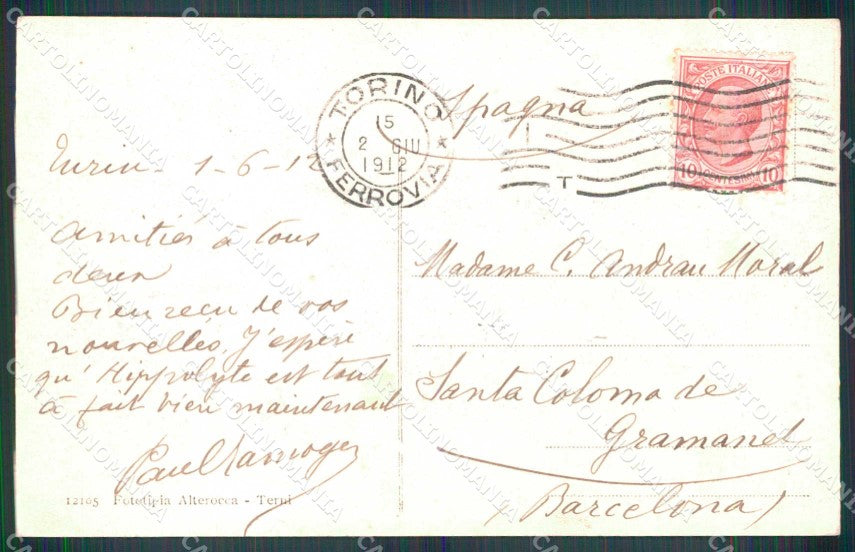 TORINO
15
2 GIU
1912
FERROVIA
Spagna
POSTE ITALIANE
10 CENTESIMI 10
T
Turin - 1-6-12
Amitiés à tous
deux
Bien reçu de vos
nouvelles, J'espère
qu'Hippolyte est tout
à fait bien maintenant
Paul
12105 Fototipia Alterocca - Terni
Madame C. Andrau Moral
Santa Coloma de
Gramanet
(Barcelona)
CARTOLINOMANIA